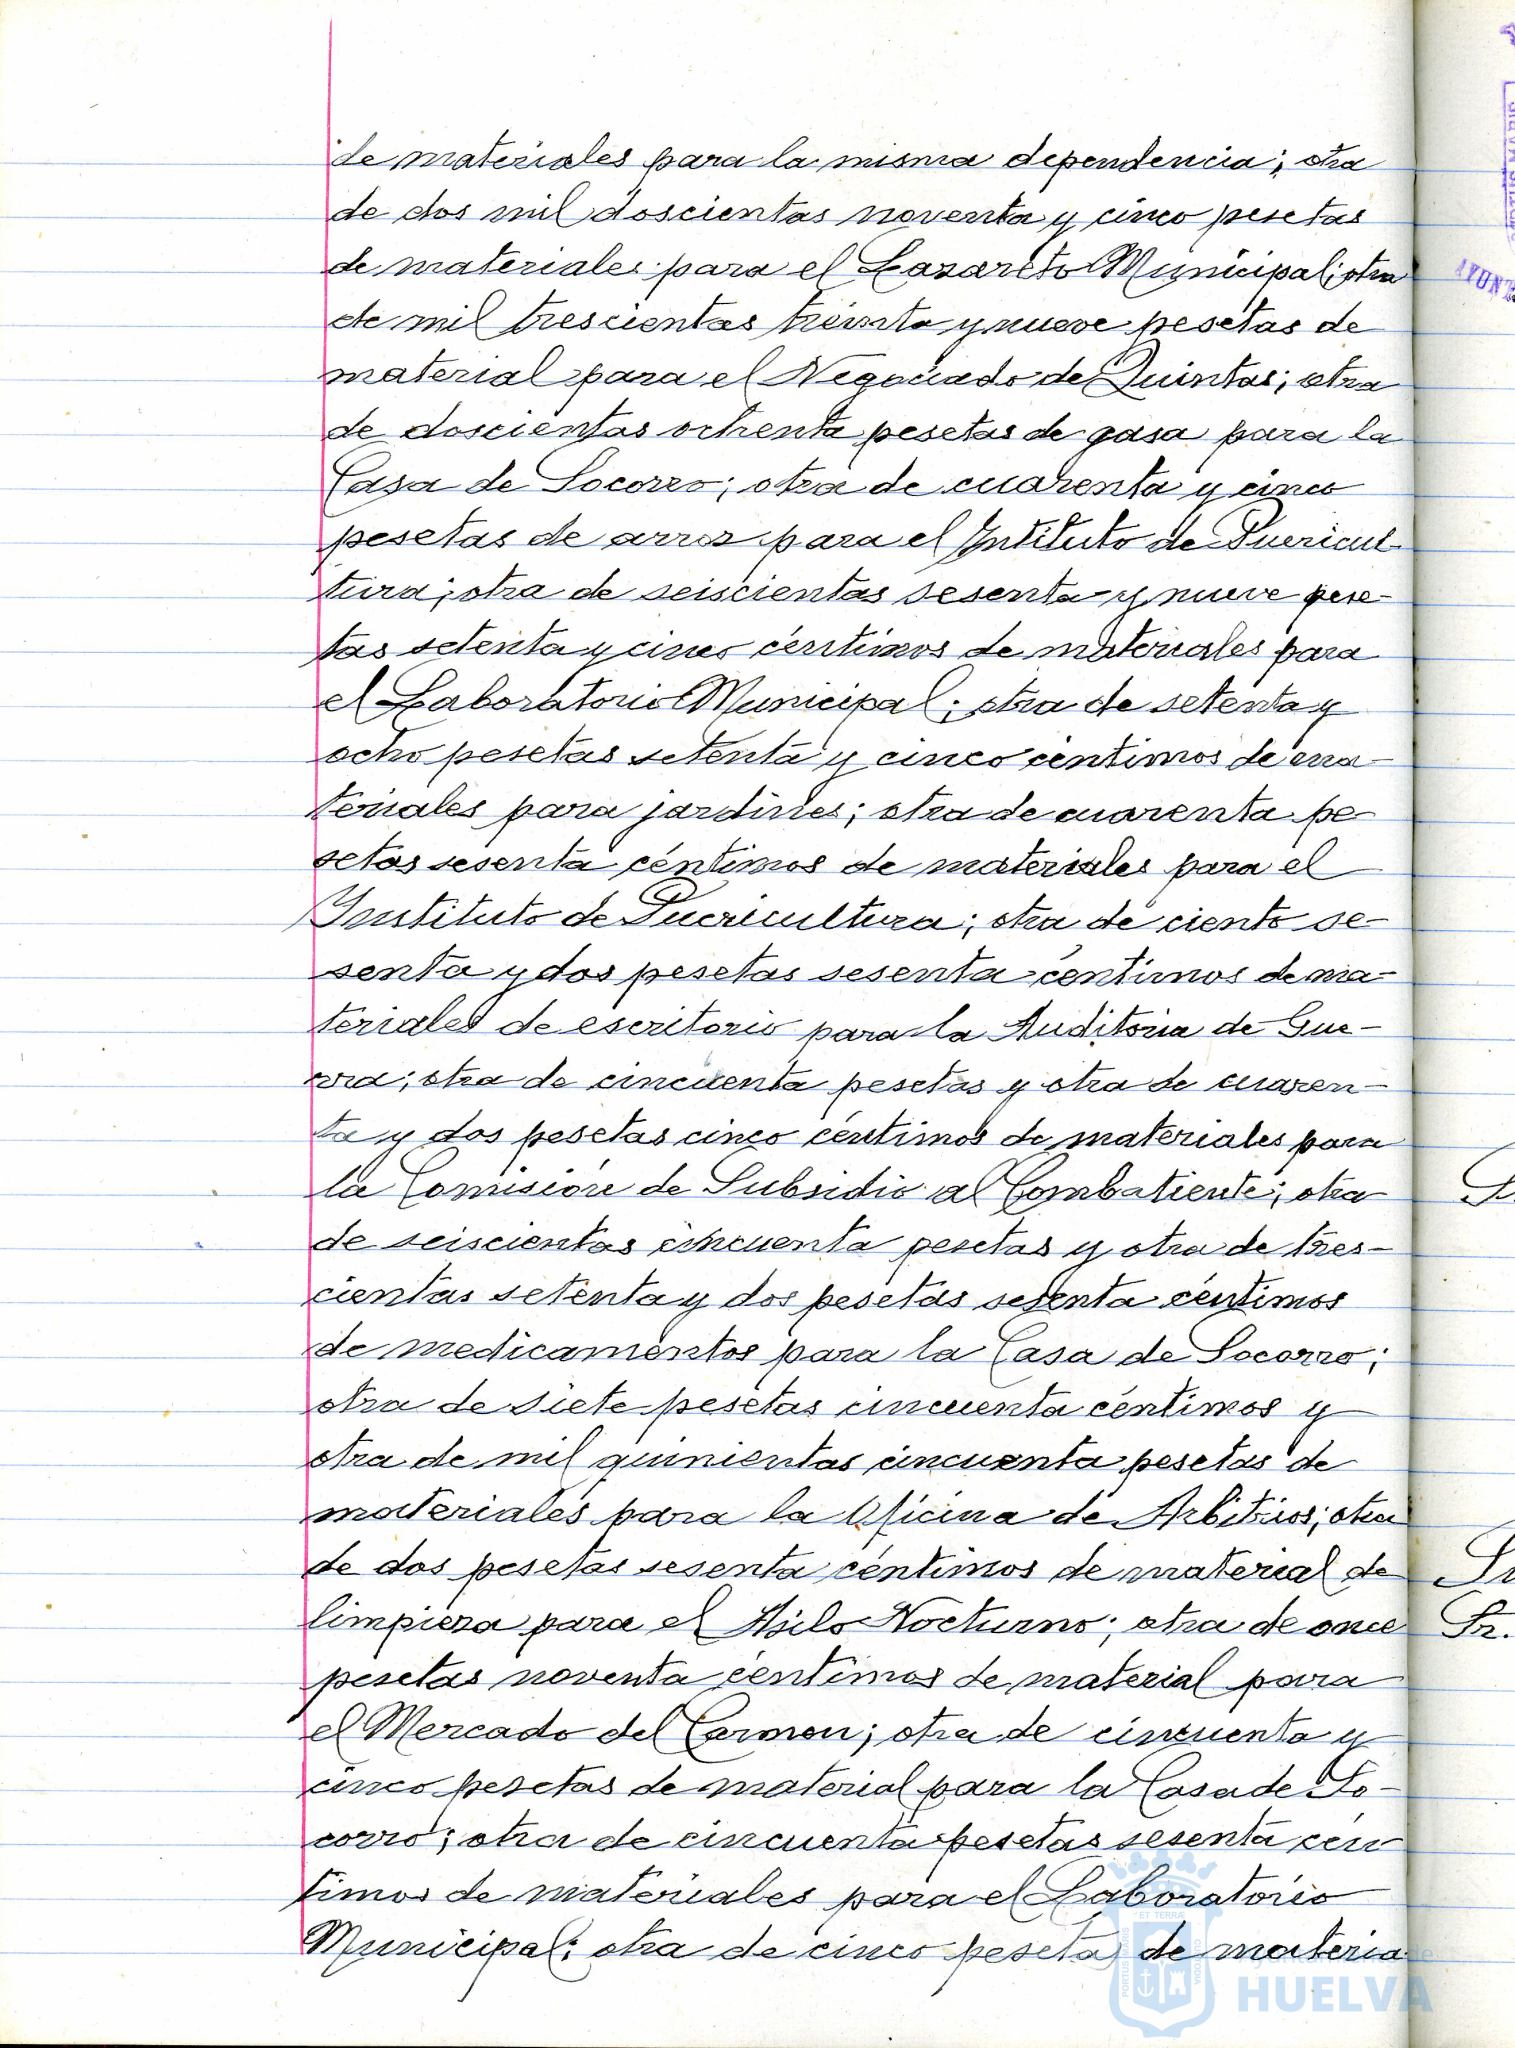 de materiales para la misma dependencia; otra
de dos mil doscientas noventa y cinco pesetas
de materiales para el Lazareto Municipal; otra
de mil trescientas treinta y nueve pesetas de
material para el Negociado de Quintas; otra
de doscientas ochenta pesetas de gasa para la
Casa de Socorro; otra de cuarenta y cinco
pesetas de arroz para el Intituto de Puericul-
tura; otra de seiscientas sesenta y nueve pese-
tas setenta y cinco céntimos de materiales para
el Laboratorio Municipal; otra de setenta y
ocho pesetas setenta y cinco céntimos de ma-
teriales para jardines; otra de cuarenta pe-
setas sesenta céntimos de materiales para el
Instituto de Puericultura; otra de ciento se-
senta y dos pesetas sesenta céntimos de ma-
teriales de escritorio para la Auditoria de Gue-
rra; otra de cincuenta pesetas y otra de cuaren-
ta y dos pesetas cinco céntimos de materiales para
la Comisión de Subsidio al Combatiente; otra
de seiscientas cincuenta pesetas y otra de tres-
cientas setenta y dos pesetas sesenta céntimos
de medicamentos para la Casa de Socorro;
otra de siete pesetas cincuenta céntimos y
otra de mil quinientas cincuenta pesetas de
materiales para la Oficina de Arbitrios; otra
de dos pesetas sesenta céntimos de material de
limpieza para el Asilo Nocturno; otra de once
pesetas noventa céntimos de material para
el Mercado del Carmen; otra de cincuenta y
cinco pesetas de material para la Casa de So-
corro; otra de cincuenta pesetas sesenta cén
timos de materiales para el Laboratorio
Municipal; otra de cinco peseta de materia
AYUNT
Fr.
ET TERRA
Ayuntamiento de
HUELVA